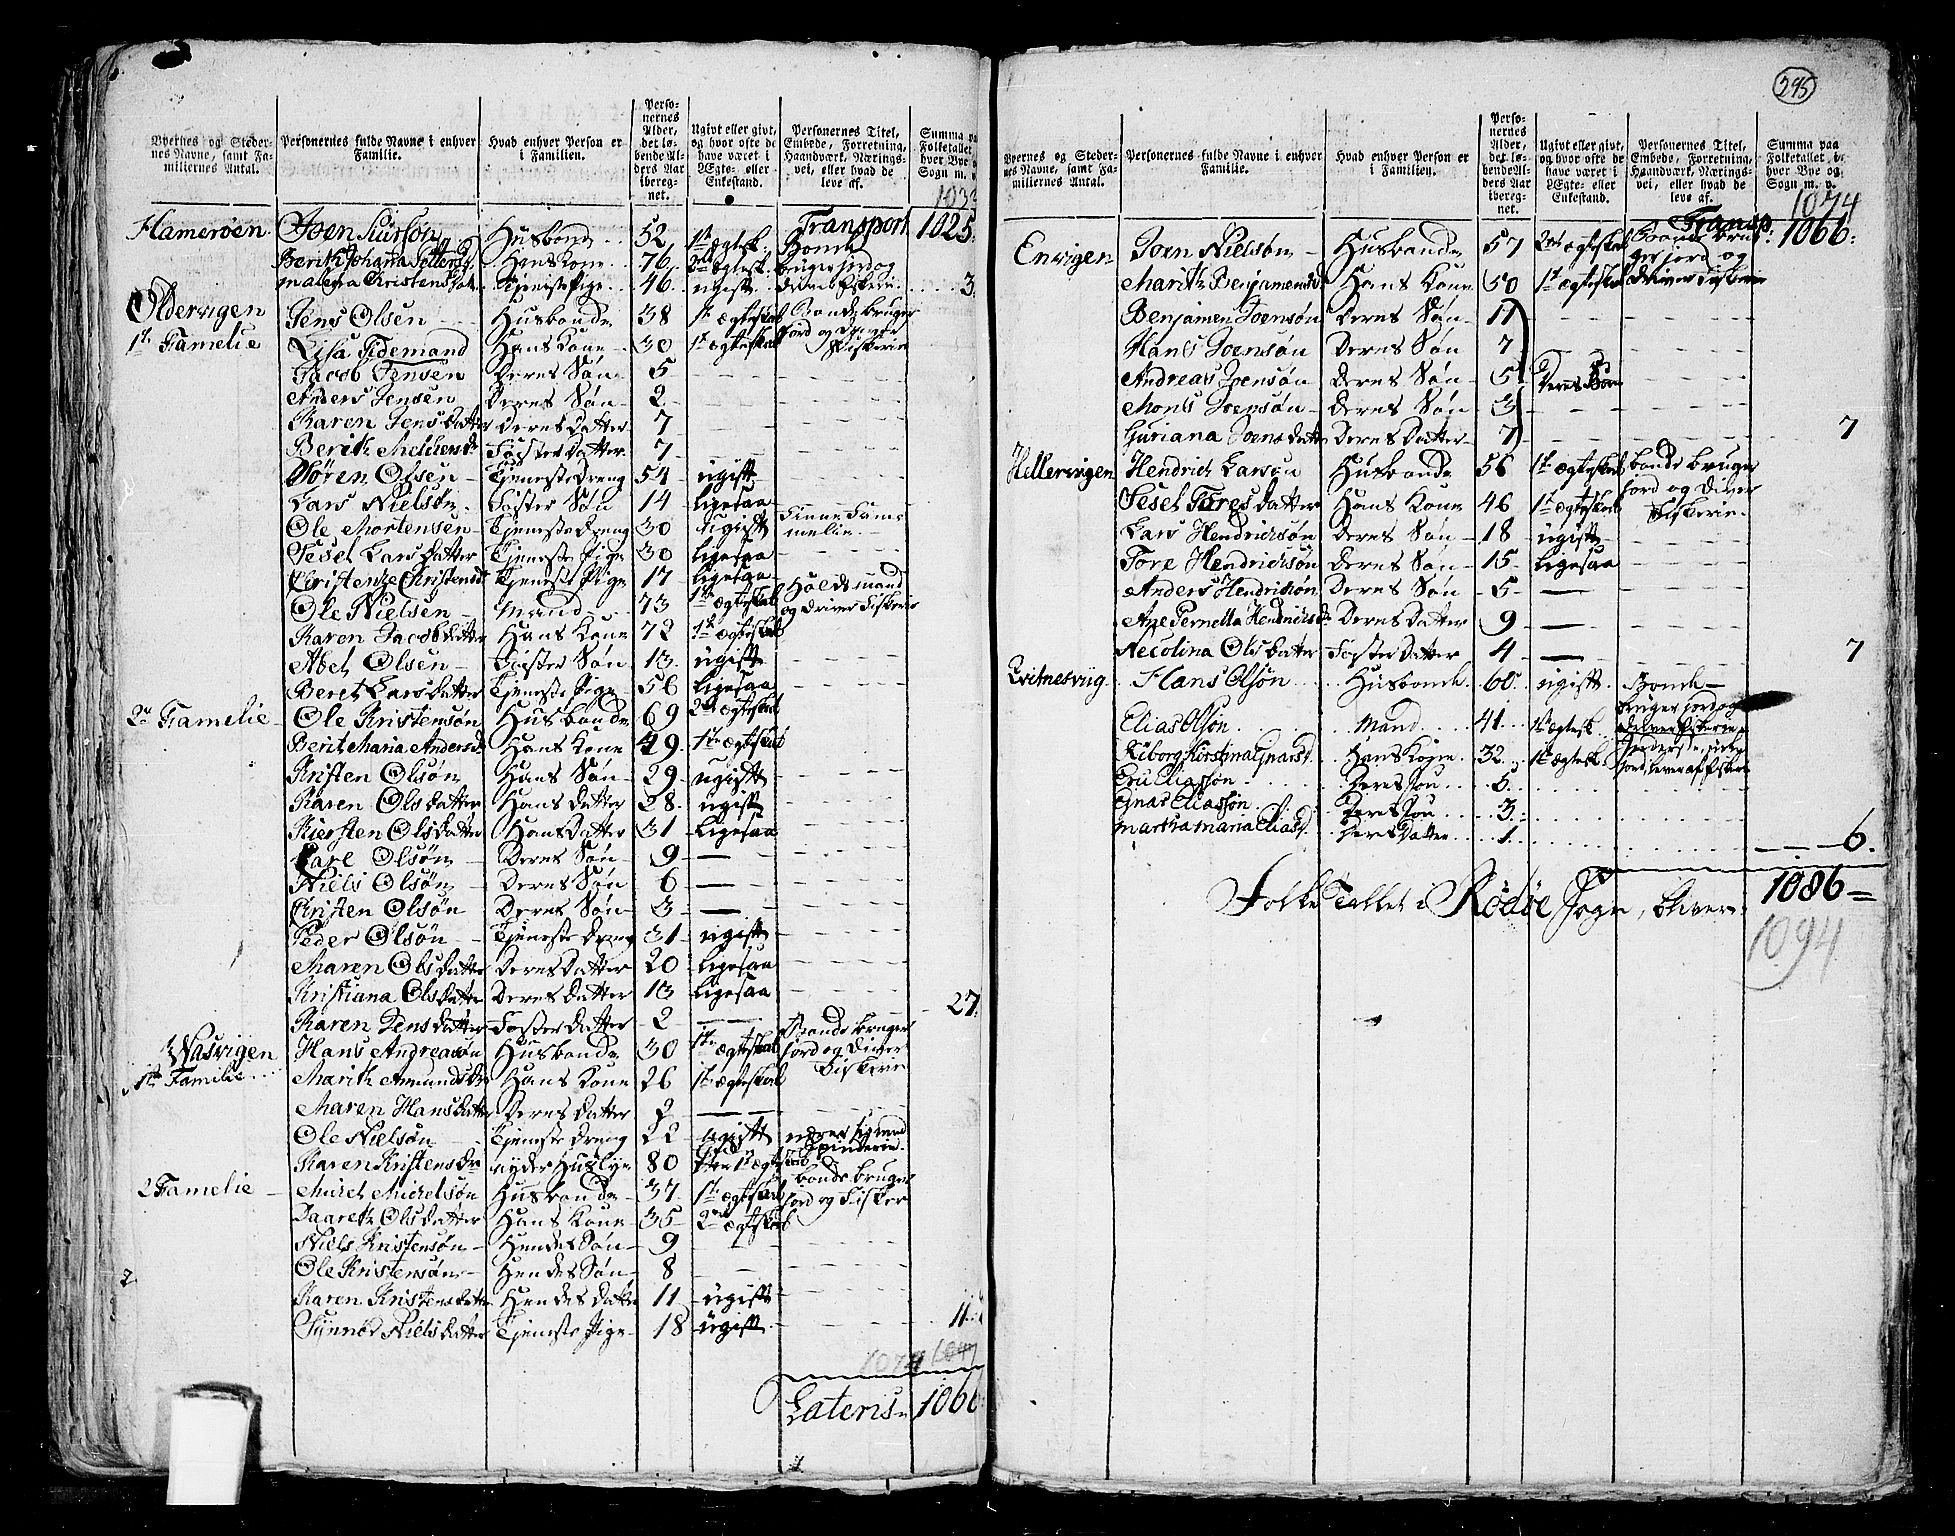 295
Byernes og Steder-
nes Navne, samt Fa-
miliernes Antal.
Personernes fulde Navne i enhver
Familie.
Hvad enhver Person er
i Familien.
Perso-
nernes
Alder,
det lø-
bende Al-
ders Aar
ibereg-
net.
Ugivt eller givt,
og hvor ofte de
have været i
Ægte- eller
Enkestand.
Personernes Titel,
Embede, Forretning,
Haandværk, Nærings-
vei, eller hvad de
leve af.
Summa paa
Folketallet i
hver Bye og
Sogn m. v.
Transport 1025
Hamerøen Husbonde 52 1te Ægtesk. Bonde
Berith Johana Hans Kone 76 2det Ægtesk. bruger jord og
Malena Christens Tjenistepige 46 ugift 3
Oldervigen Jens Olsen Husbonde 38 1te ægteskab Bonde bruger
1te Famelie Lisa Tidemand Hans Kone 30 1te ægteskab jord og driver Fiskerie
Jacob Jensen Deres Søn 5
Anders Jensen Deres Søn 2
Karen Jens datter Deres datter 7
Berith Foster datter 7
Søren Olsen Tjeneste Dreng 54 ugift
Lars Nielsøn Foster Søn 14 ligesaa
Ole Mortensen Tjeneste Dreng 30 ugift Finne Fame
melie
Sesel Lars datter Tjeneste Pige 30 ligesaa
Christense Christensd. Tjeneste Pige 17 ligesaa
Ole Nielsen Mand 73 1te ægteskab og driver Fiskerie
Karen Jacobs datter Hans Kone 72 1te ægteskab
Abel Olsen Foster Søn 13 ugift
Beret Lars datter Tjeneste Pige 56 ligesaa
2n Famelie Ole Kristensøn Husbonde 69 2det ægteskab
Berit Maria Anders d. Hans Kone 49 1te ægteskab
Kristen Olsøn Hans Søn 29 ugift
Karen Ols datter Hans datter 28 ugift
Kiersten Ols datter Hans Datter 31 ligesaa
Lars Olsøn Deres Søn 9
Niels Olsøn Deres Søn 6
Kristen Olsøn Deres Søn 3
Peder Olsøn Tjeneste Dreng 31 ugift
Maren Ols datter Deres datter 20 ligesaa
Kristiana Ols datter Deres datter 13 ligesaa 27
Karen Jens datter Foster datter 2
Hans Andreasøn Husbonde 30 1te ægteskab Bonde bruger
1te Familie Marith Amunds dr Hans Kone 26 1te ægteskab jord og driver Fiskerie
Maren Hans datter Deres datter 2
Ole Nielsøn Tjeneste Dreng 22 ugift
Karen Kristens dr nyder Huuslye 80 1te ægteskab nærer sig med Spinderie
2 Famelie Michel Michelsøn Husbonde 37 1te ægteskab bonde bruger
Ols datter Hans Kone 35 2det ægteskab jord og Fisker
Niels Kristensøn Hendes Søn 9
Ole Kristensøn Hendes Søn 8
Karen Kristens datter Hendes datter 11 ugift
Synnød Niels datter Tjeneste Pige 18 ugift 11
1074
Lateris 1066
Byernes og Steder-
nes Navne, samt Fa-
miliernes Antal.
Personernes fulde Navne i enhver
Familie.
Hvad enhver Person er
i Familien.
Perso-
nernes
Alder,
det lø-
bende Al-
ders Aar
ibereg-
net.
Ugivt eller givt,
og hvor ofte de
have været i
Ægte- eller
Enkestand.
Personernes Titel,
Embede, Forretning,
Haandværk, Nærings-
vei, eller hvad de
leve af.
Summa paa
Folketallet i
hver Bye og
Sogn m. v.
1074
Transp. 1066
Envigen Joen Nielsøn Husbonde 57 2det ægteskab Bonde bru
ger jord og
Marith Benjamensd. Hans Kone 50 1te ægteskab driver Fiskerie
Benjamen Joensøn Deres Søn 11
Hans Joensøn Deres Søn 7
Andreas Joensøn Deres Søn 5 Deres Børn
Mons Joensøn Deres Søn 3
Guriana Joens datter Deres Datter 7 7
Hillervigen Hendrich Larsøn Husbonde 56 1te ægteskab bonde bruger
Sesel Tores datter Hans Kone 46 1te ægteskab jord og driver
Fiskerie
Lars Hendrichsøn Deres Søn 18 ugift
Tore Hendrichsøn Deres Søn 15 ligesaa
Anders Hendrichsøn Deres Søn 5
Ane Pernella Hendrichsdr Deres datter 9
Necolina Ols datter Foster Datter 4 7
Hans Olsøn Husbonde 60 ugift Bonde
bruger jord og
Elias Olsøn Mand 41 1te ægtesk.
Hans Kone 32 1te ægtesk.
Eliassøn Deres søn 5
Eliassøn Deres søn 3
Martha Maria Eliasd. Deres datter 1 6
Folke Tallet i Rødøe Sogn, bliver 1086
1094